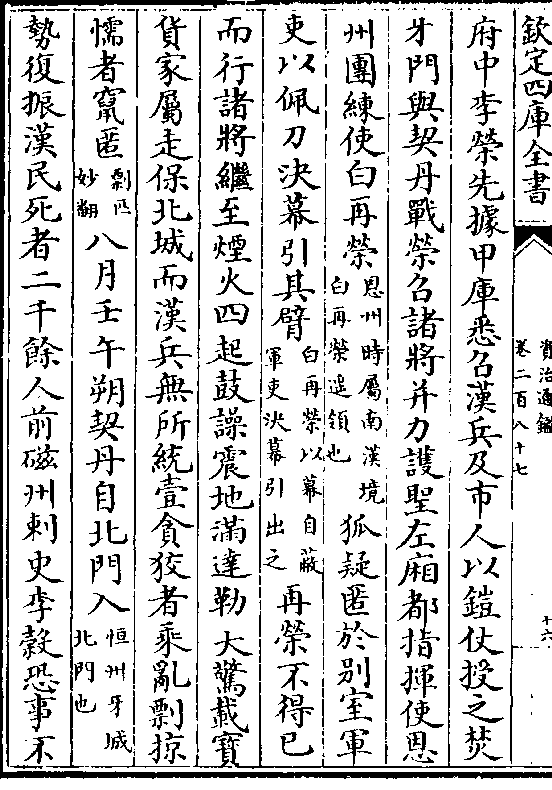 欽定四庫全書
資治通鑑
卷二百八十七
十六
府中李榮先據甲庫悉召漢兵及市人以鎧仗授之焚
牙門與契丹戰榮召諸將并力護聖左廂都指揮使恩
州團練使白再榮恩州時屬南漢境白再榮遥領也狐疑匿於别室軍
吏以佩刀決幕引其臂白再榮以幕自蔽軍吏決幕引出之再榮不得已
而行諸將繼至煙火四起鼓譟震地滿達勒大驚載寳
貨家屬走保北城而漢兵無所統壹貪狡者乘亂剽掠
懦者竄匿剽匹妙翻八月壬午朔契丹自北門入恒州牙城北門也
勢復振漢民死者二千餘人前磁州刺史李穀恐事不